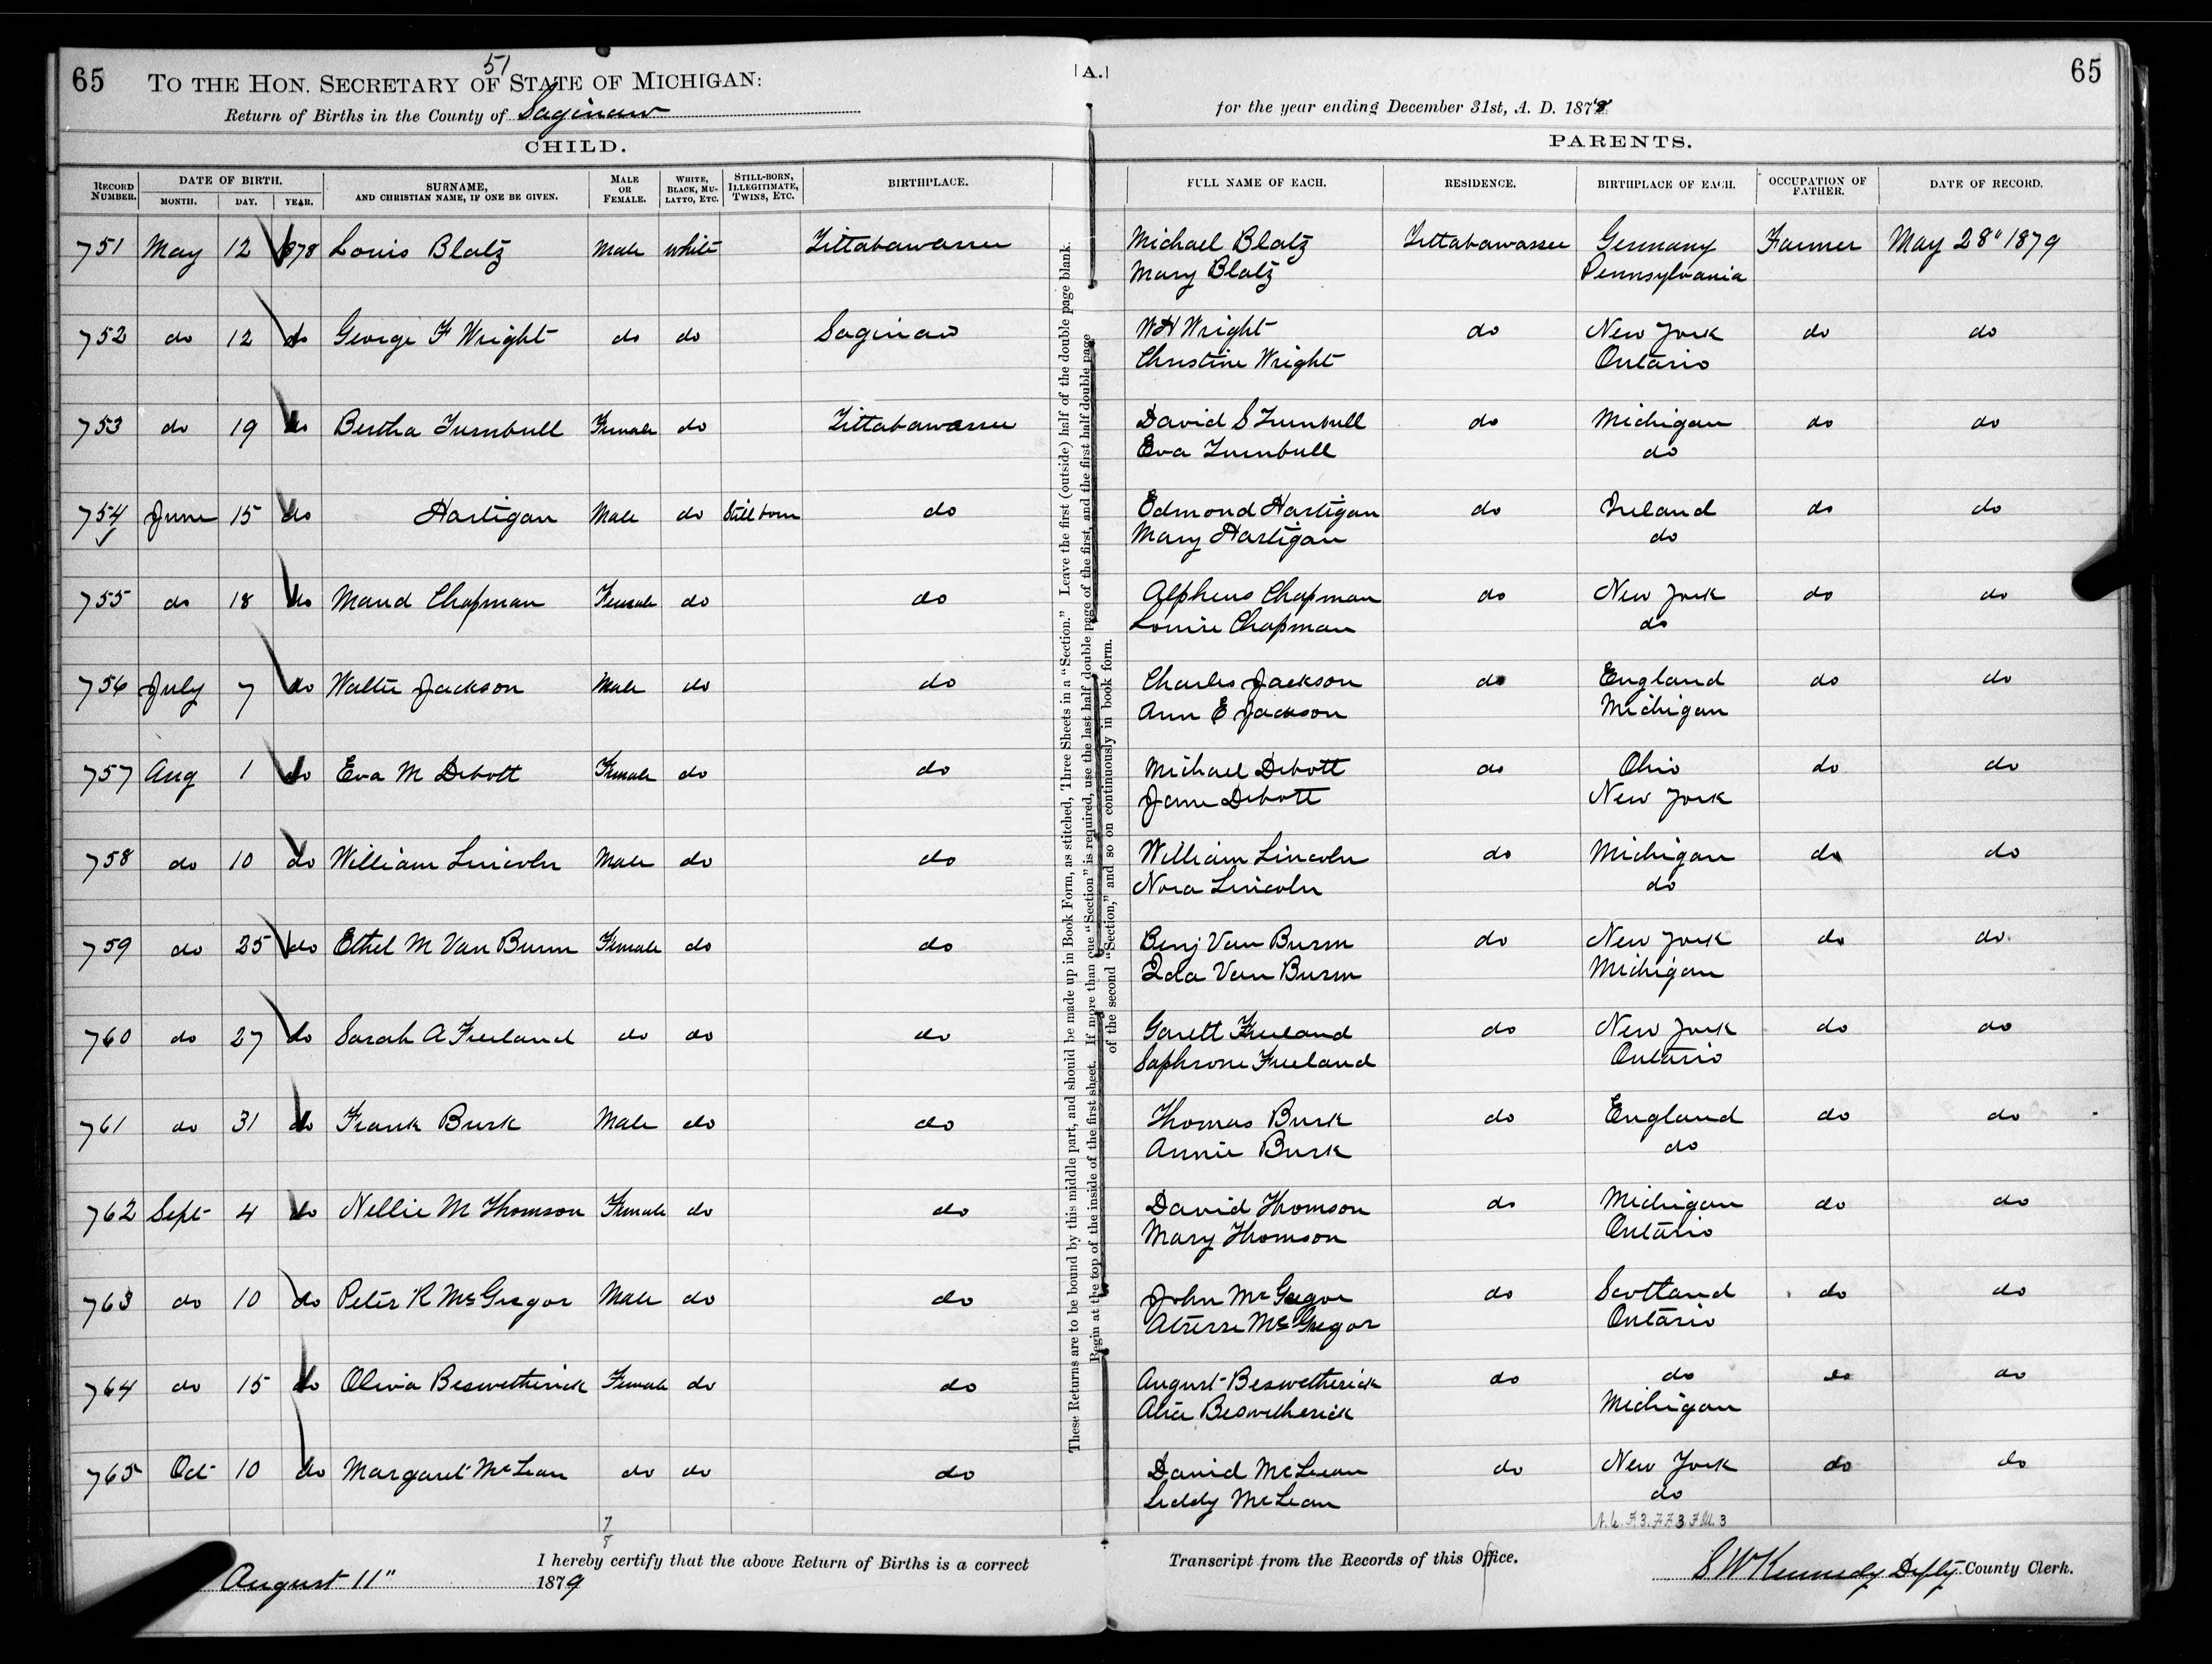 65 TO THE HON. SECRETARY OF STATE OF MICHIGAN: 51 |A.| 65
Return of Births in the County of Saginaw for the year ending December 31st, A. D. 1878
CHILD. PARENTS.
RECORD NUMBER. DATE OF BIRTH. MONTH. DAY. YEAR. SURNAME, AND CHRISTIAN NAME, IF ONE BE GIVEN. MALE OR FEMALE. WHITE, BLACK, MULATTO, ETC. STILL-BORN, ILLEGITIMATE, TWINS, ETC. BIRTHPLACE. FULL NAME OF EACH. RESIDENCE. BIRTHPLACE OF EACH. OCCUPATION OF FATHER. DATE OF RECORD.
751 May 12 1878 Louis Blatz Male white Tittabawassee Michael Blatz Tittabawassee Germany Farmer May 28" 1879
Mary Blatz Pennsylvania
752 do 12 do George F Wright do do Saginaw WH Wright do New York do do
Christine Wright Ontario
753 do 19 do Bertha Turnbull Female do Tittabawassee David S Turnbull do Michigan do do
Eva Turnbull do
754 June 15 do Hartigan Male do Still born do Edmond Hartigan do Ireland do do
Mary Hartigan do
755 do 18 do Maud Chapman Female do do Alpheus Chapman do New York do do
Louise Chapman do
756 July 7 do Walter Jackson Male do do Charles Jackson do England do do
Ann E Jackson Michigan
757 Aug 1 do Eva M Debott Female do do Michael Debott do Ohio do do
Jane Debott New York
758 do 10 do William Lincoln Male do do William Lincoln do Michigan do do
Nora Lincoln do
759 do 25 do Ethel M Van Buren Female do do Benj Van Buren do New York do do
Ida Van Buren Michigan
760 do 27 do Sarah A Freeland do do do Garett Freeland do New York do do
Saphrone Freeland Ontario
761 do 31 do Frank Burk Male do do Thomas Burk do England do do
Annie Burk do
762 Sept 4 do Nellie M Thomson Female do do David Thomson do Michigan do do
Mary Thomson Ontario
763 do 10 do Peter R McGregor Male do do John McGregor do Scotland do do
McGregor Ontario
764 do 15 do Olivia Beswetherick Female do do August Beswetherick do do do do
Alice Beswetherick Michigan
765 Oct 10 do Margaret McLean do do do David McLean do New York do do
Liddy McLean do
7
8
These Returns are to be bound by this middle part, and should be made up in Book Form, as stitched, Three Sheets in a "Section." Leave the first (outside) half of the double page blank.
Begin at the top of the inside of the first sheet. If more than one "Section" is required, use the last half double page of the first, and the first half double page
of the second "Section," and so on continuously in book form.
I hereby certify that the above Return of Births is a correct Transcript from the Records of this Office.
August 11" 1879 S W Kennedy Depty County Clerk.